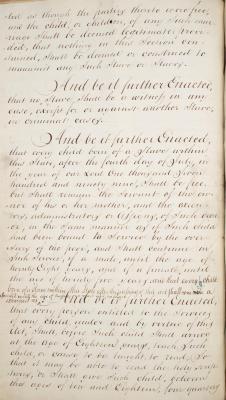 ted as though the parties thereto were free,
and the child, or children, of any such mar-
riage shall be deemed legitimate; provi-
ded, that nothing in this Section con-
tained, shall be deemed or construed to
manumit any such Slave or Slaves.
And be it further Enacted,
that no Slave, Shall be a witness in any
case, except for or against another Slave,
in criminal cases.
And be it further Enacted,
that every child born of a slave within
this State, after the fourth day of July, in
the year of our Lord One thousand Seven
hundred and ninety nine, Shall be free
but Shall remain the servant of the own-
er of his or her mother, and the execu-
tors, administrators or Assigns, of such own-
er, in the same manner as if such child
had been bound to Service by the over-
seers of the poor, and shall continue in
such Service, if a male, until the age of
twenty Eight years, and if a female, until
the age of twenty five years; and that every child
born of a slave within this State after the passing of this act, shall
until the age of
And be it further Enacted,
that every person entitled to the service
of any child, under and by virtue of this
Act, Shall before such child Shall arrive
at the age of Eighteen years, teach such
child, or cause to be taught, to read, so
that it may be able to read the holy scrip-
tures, or Shall give such child, between
the ages of ten and Eighteen, four quarters